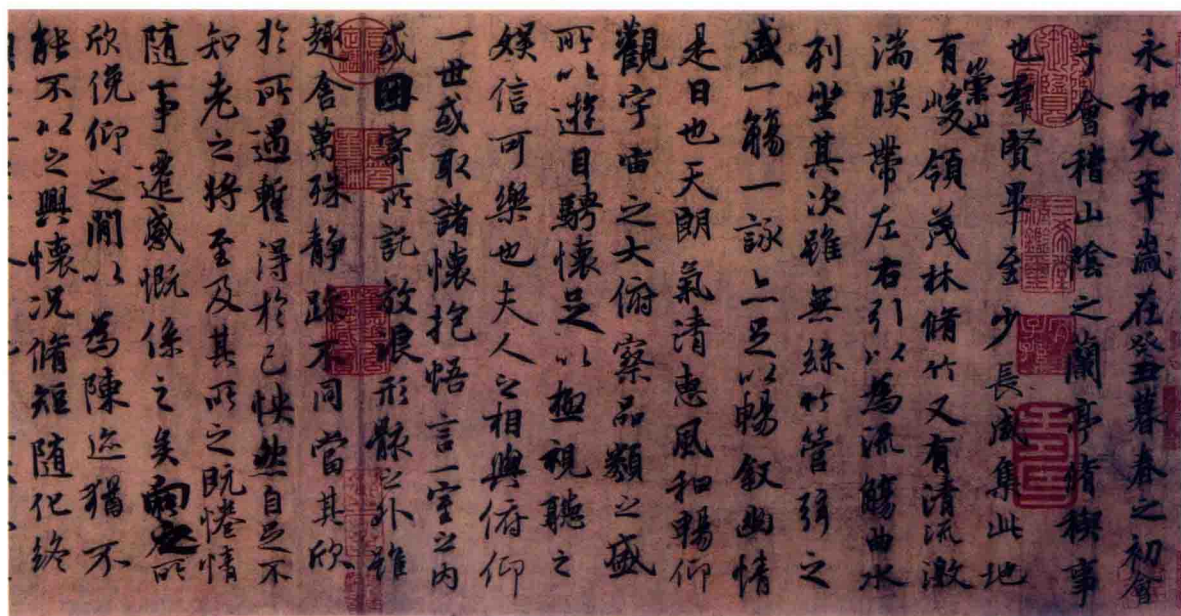 永和九年歲在癸丑暮春之初會
于會稽山陰之蘭亭脩稧事
也羣賢畢至少長咸集此地
有崇山峻領茂林脩竹又有清流激
湍暎帶左右引以為流觴曲水
列坐其次雖無絲竹管弦之
盛一觴一詠亦足以暢叙幽情
是日也天朗氣清惠風和暢仰
觀宇宙之大俯察品類之盛
所以遊目騁懷足以極視聽之
娛信可樂也夫人之相與俯仰
一世或取諸懷抱悟言一室之內
或因寄所託放浪形骸之外雖
趣舍萬殊静躁不同當其欣
於所遇暫得於己怏然自足不
知老之將至及其所之既惓情
随事遷感慨係之矣向之所
欣俛仰之閒以為陳迹猶不
能不以之興懷況脩短随化終